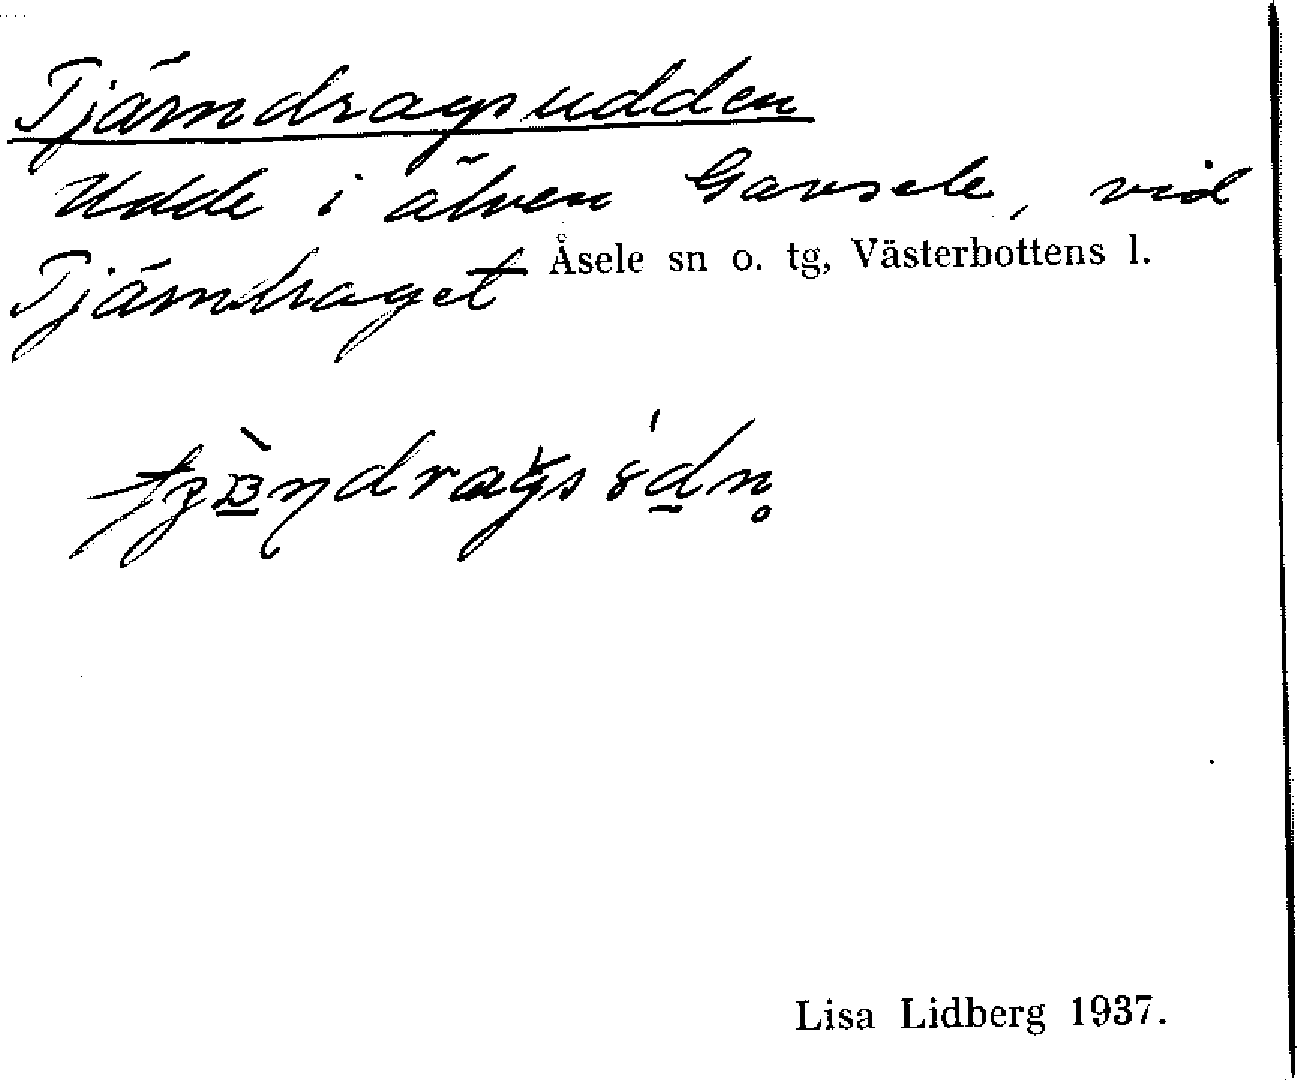 Tjärndragsudden
Udde i älven Gavsele, vid
Tjärndraget
Åsele sn o. tg, Västerbottens l.
Lisa Lidberg 1937.